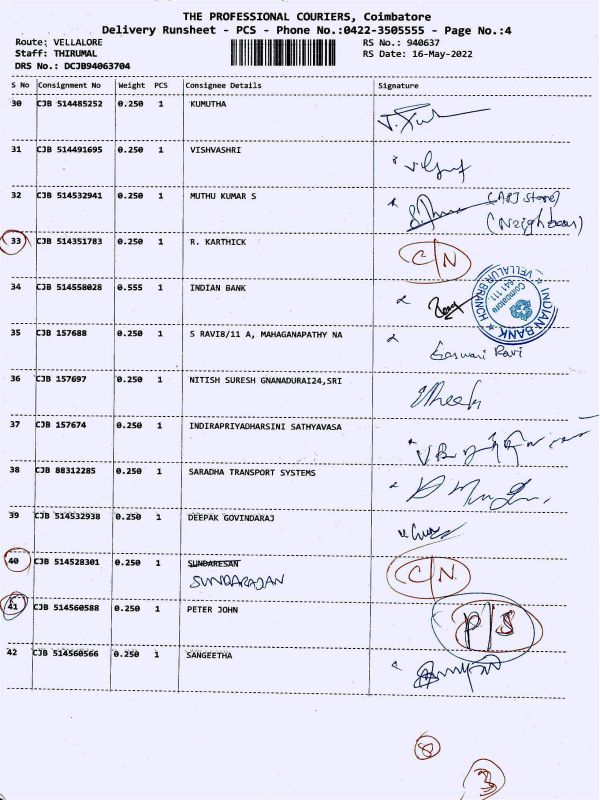 THE PROFESSIONAL COURIERS, Coimbatore
Delivery Runsheet - PCS - Phone No.:0422-3505555 - Page No.:4
Route: VELLALORE RS No.: 940637
Staff: THIRUMAL RS Date: 16-May-2022
DRS No.: DCJB94063704
S No Consignment No Weight PCS Consignee Details Signature
30 CJB 514485252 0.250 1 KUMUTHA
31 CJB 514491695 0.250 1 VISHVASHRI
32 CJB 514532941 0.250 1 MUTHU KUMAR S
33 CJB 514351783 0.250 1 R. KARTHICK C/N
34 CJB 514558028 0.555 1 INDIAN BANK
INDIAN BANK VELLALUR BRANCH Coimbatore 641 111
35 CJB 157688 0.250 1 S RAVI8/11 A, MAHAGANAPATHY NA Easwari Ravi
36 CJB 157697 0.250 1 NITISH SURESH GNANADURAI24,SRI
37 CJB 157674 0.250 1 INDIRAPRIYADHARSINI SATHYAVASA
38 CJB 88312285 0.250 1 SARADHA TRANSPORT SYSTEMS
39 CJB 514532938 0.250 1 DEEPAK GOVINDARAJ
40 CJB 514528301 0.250 1 SUNDARESAN C/N
SUNDARAJAN
41 CJB 514560588 0.250 1 PETER JOHN P/S
42 CJB 514560566 0.250 1 SANGEETHA
8
3